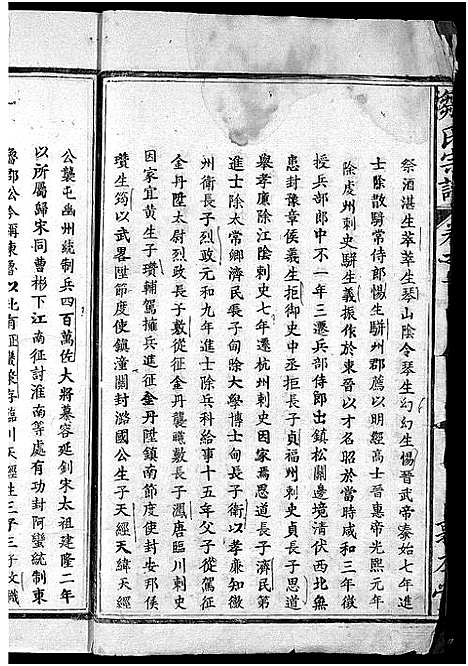 祭酒湛生莘莘生琴山陰令琴生幻幻生惕晋武帝泰始七年進
士除散騎常侍郎惕生駢州郡薦以明經高士晋惠帝光熙元年
除虔州刺史駢生義振作於東晋以才名昭於當時咸和三年徵
授兵部郎中不一年三遷兵部侍郎出鎮松關邊境清伏西北無
患封豫章侯義生拒御史中丞拒長子貞福州刺史貞長子思道
舉孝廉除江陰刺史七年遷杭州刺史因家焉思道長子濟民第
進士除太常卿濟民長子甸除大學博士甸長子衛以孝廉知徵
州衛長子烈政元和九年進士除兵科給事十五年父子從駕征
金丹陞太尉烈政長子敷從征金丹襲職敷長子瀷唐臨川刺史
因家宜黄生子瓚輔駕擁兵進征金丹陞鎮南節度使封安邦侯
瓚生筠以武畧陞節度使鎮潼關封潞國公生子天經天緯天經
公襲屯幽州統制兵四百萬佐大將慕容延釗宋太祖建隆二年
以所屬歸宋同曹彬下江南征討淮南等處有功封阿蠻統制東
魯郡公今稱東魯以此有征樂泰寺臨川天經生三子三子文職
鄒氏宗譜